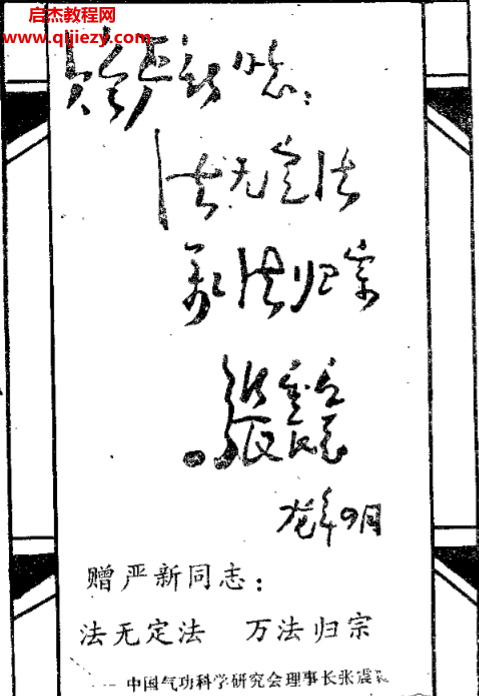 启杰教程网
www.qijiezy.com
赠严新同志：
法无定法
万法归宗
张震寰
龙年 月
赠严新同志：
法无定法　万法归宗
— 中国气功科学研究会理事长张震寰